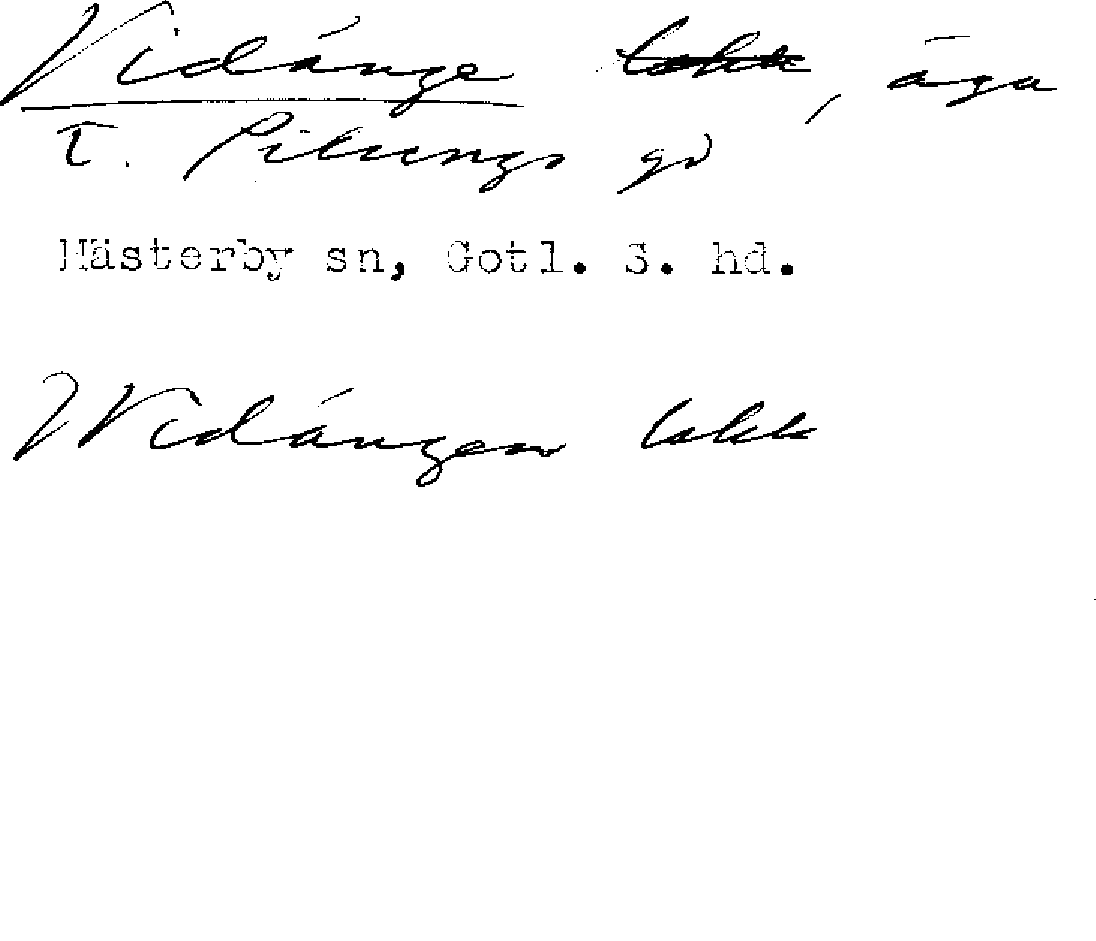 Vidänge lokk, äga
t. Pilungs gd
Mästerby sn, Gotl. S. hd.
Widängen lokk